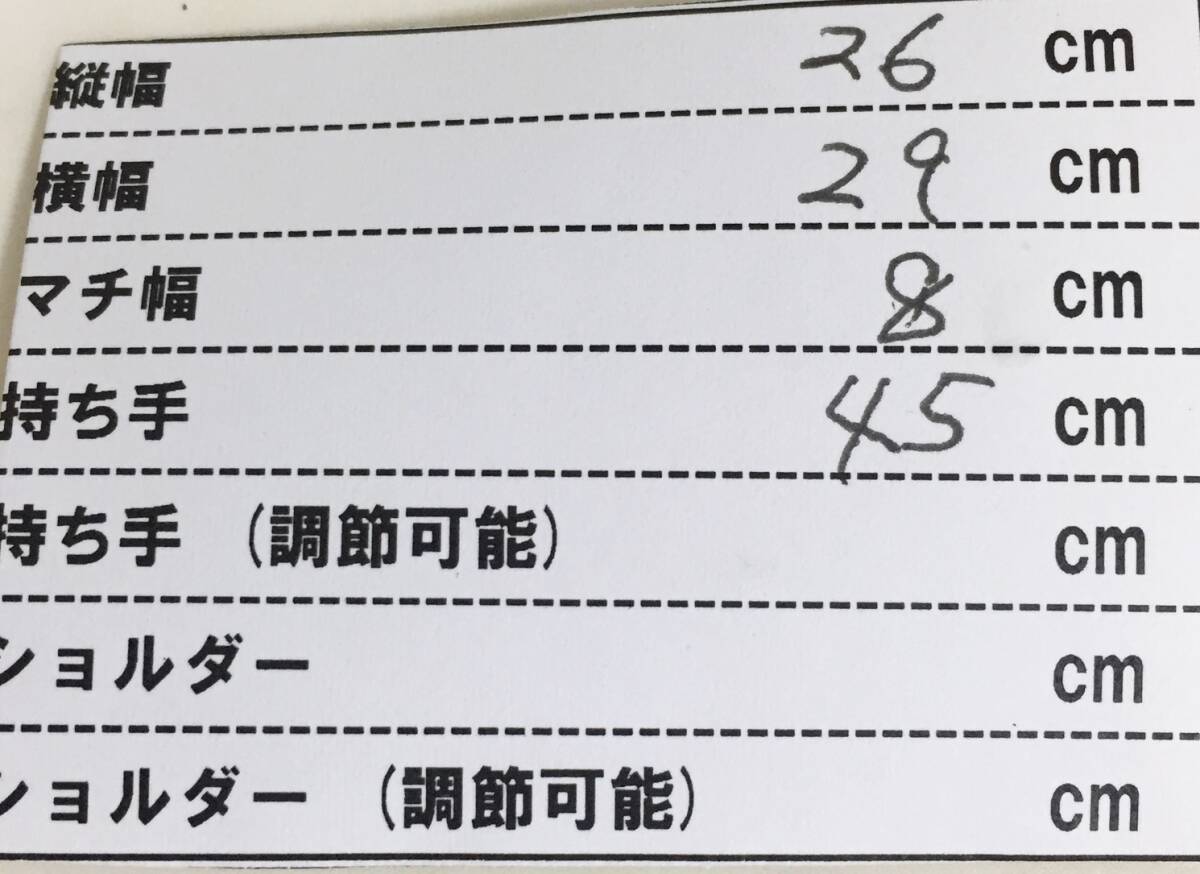 縦幅 26 cm
横幅 29 cm
マチ幅 8 cm
持ち手 45 cm
持ち手 (調節可能) cm
ショルダー cm
ショルダー (調節可能) cm